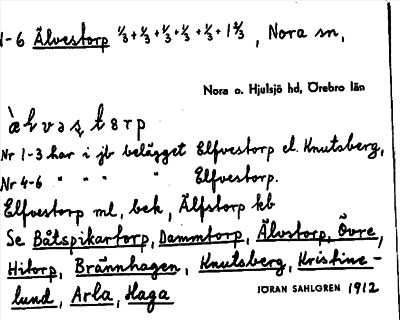 1-6 Älvestorp ⅓+⅓+⅓+⅓+⅓+1⅔, Nora sn,
Nora o. Hjulsjö hd, Örebro län
Nr 1-3 har i jb belägget Elfvestorp el. Knutsberg,
Nr 4-6 " " " " Elfvestorp.
Elfvestorp ml, bek, Älfstorp kb
Se Båtspikartorp, Dammtorp, Älvstorp, Övre,
Hitorp, Brännhagen, Knutsberg, Kristine-
lund, Arla, Haga
JÖRAN SAHLGREN 1912